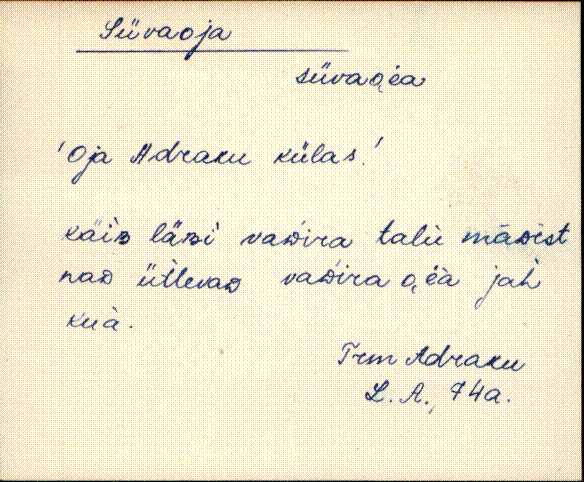 Süvaoja
süvao̭ėa
'Oja Adraku külas.'
käiʙ läʙi vaᴅ́ira talu màᴅist
naᴅ ütlevaᴅ vaᴅ́ira oėa jah
kua.
Trm Adraku
L. A., 74a.